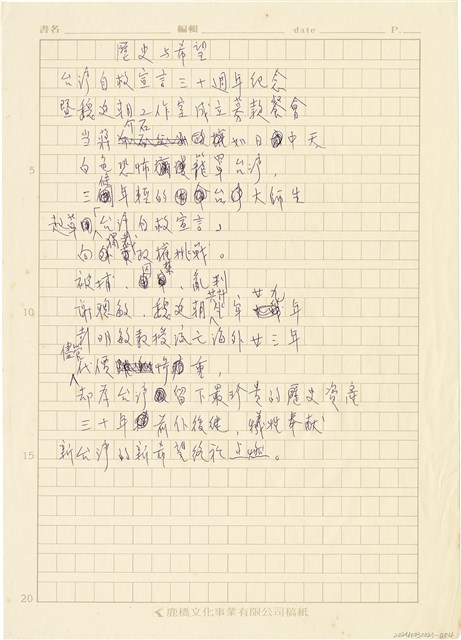 書名 編輯 date P.
歷史与希望
台湾自救宣言三十週年紀念
暨魏廷朝工作室成立募款餐會
当蔣介石 如日中天
白色恐怖籠罩台湾,
三個年輕的台大師生
起草「台湾自救宣言」
向獨裁政權挑战。
被捕、囚禁、亂判
謝聰敏、魏廷朝共坐牢廿九年
彭明敏教授流亡海外廿三年
代價 重,
却為台湾留下最珍貴的歷史資產
三十年前仆後继,犧牲奉献
新台湾的新希望終於点燃。
5
10
15
20
鹿橋文化事業有限公司稿紙